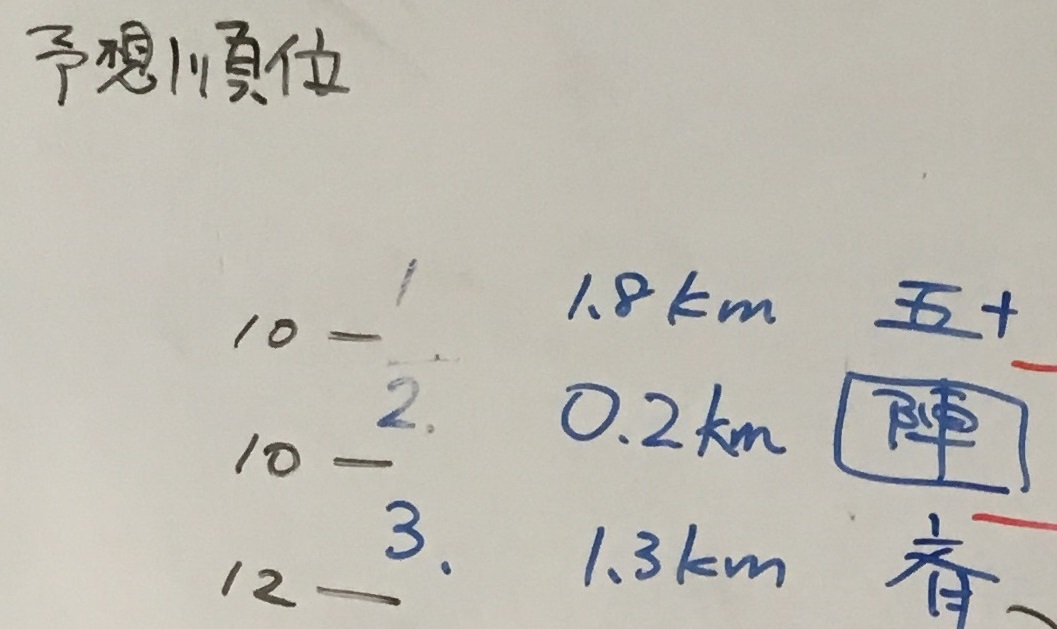 予想順位
1
10 — 1.8km 五十
2.
10 — 0.2km 陣
3.
12 — 1.3km 斉